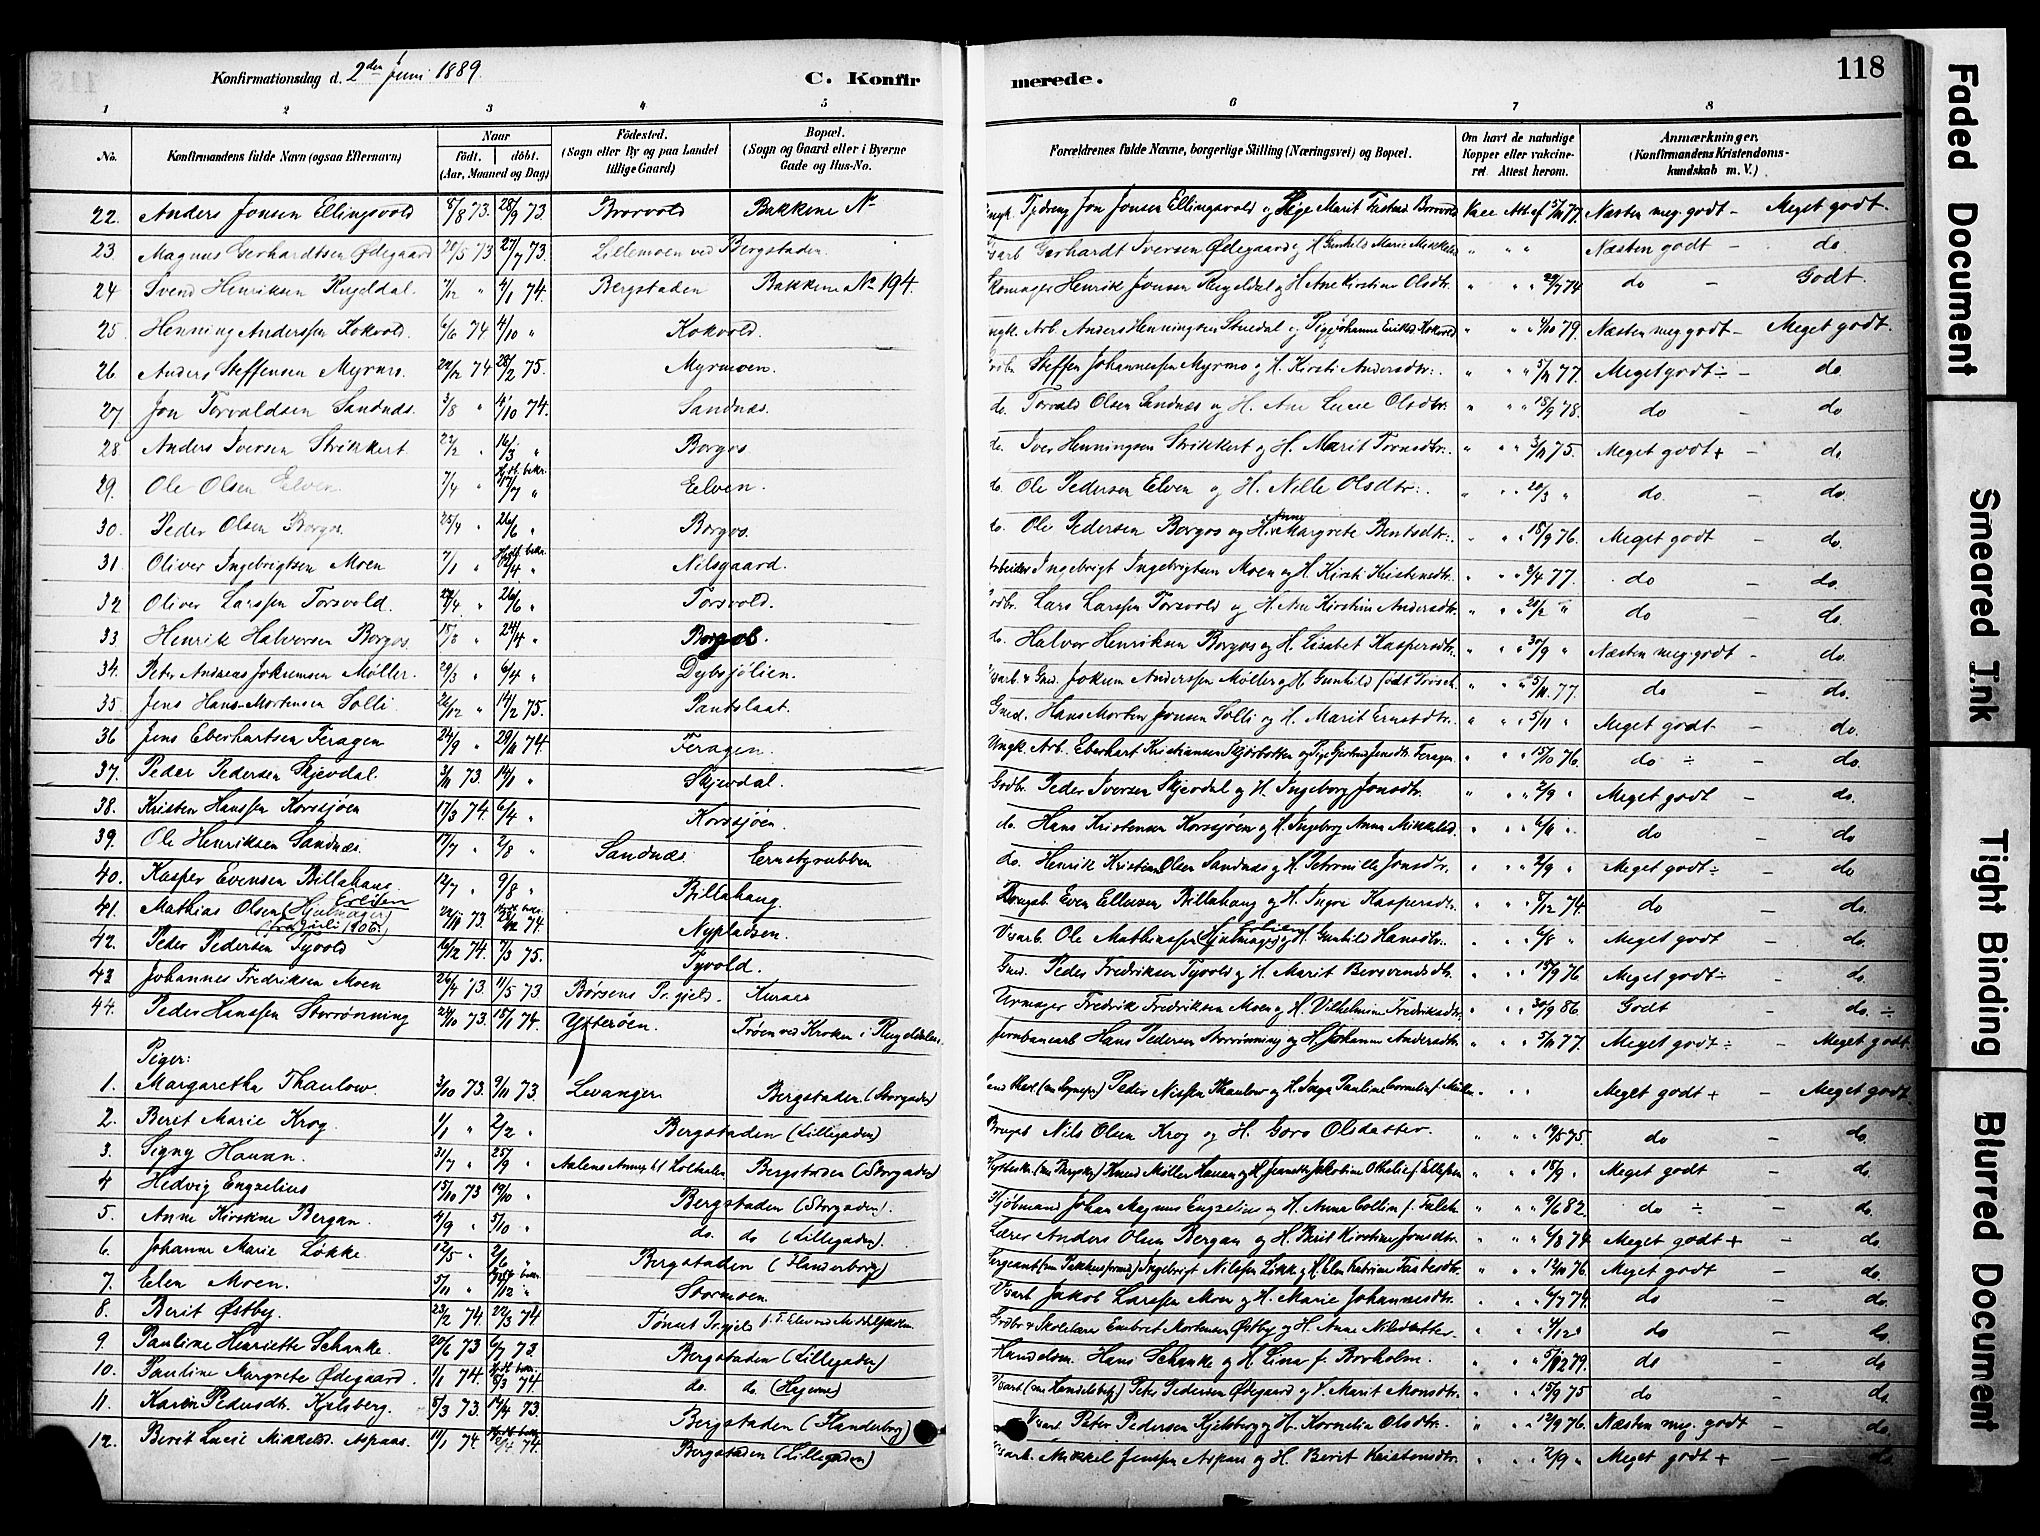 Konfirmationsdag d. 2den Juni 1889.
C. Konfir merede.
118
1 2 3 4 5 6 7 8
No. Konfirmandens fulde Navn (ogsaa Efternavn) Naar födt. döbt. (Aar, Maaned og Dag) Födested. (Sogn eller By og paa Landet tillige Gaard) Bopæl. (Sogn og Gaard eller i Byerne Gade og Hus-No. Forældrenes fulde Navne, borgerlige Stilling (Næringsvei) og Bopæl. Om havt de naturlige Kopper eller vakcineret Attest herom. Anmærkninger. (Konfirmandens Kristendomskundskab m. V.)
22. Anders Jonsen Ellingsvold 5/8 73. 28/9 73. Brovold Bakkene No Jon Jonsen Ellingsvold og Pige Marit Vacc. Att. af 5/11 77. Næsten meg. godt - Meget godt.
23. Magnus Gerhardtsen Ødegaard 20/5 73 27/7 73. Lillemoen ved Bergstaden. Gerhardt Iversen Ødegaard og H. Gunhild Marie Mikkelsd. " " " Næsten godt - do
24 Svend Henriksen Rugeldal. 7/12 " 4/1 74. Bergstaden Bakkene No 194. Skomager Henrik Jonsen Rugeldal og H. Ane Kirstine Olsdtr. " " " 29/7 74 do - Godt.
25 Henning Anderssen Kokvold. 6/6 74 4/10 " Kokvold. Ungk. Arb. Anders Henningsen Stuedal og Pige Johanne Eriksd. Kokvold " " " 4/10 79. Næsten meg godt - Meget godt.
26. Anders Steffensen Myrmo. 24/12 74 28/2 75. Myrmoen. Steffen Johannessen Myrmo og H. Kirsti Andersdtr. " " " 5/11 77. Meget godt ÷ - do
27 Jon Torvaldsen Sandnæs. 3/8 " 4/10 74. Sandnæs. do. Torvald Olsen Sandnæs og H. Ane Lucie Olsdtr. " " " 15/9 78. do - do
28 Anders Iversen Strikkert. 22/2 " 16/3 " Borgos do. Iver Henningsen Strikkert og H. Marit Tornsdtr. " " " 3/11 75. Meget godt + - do.
29. Ole Olsen Elven 7/4 " Hj.d. bekr. 17/7 " Elven. do. Ole Pedersen Elven og H. Nille Olsdtr. " " " 20/3 " do - do.
30. Peder Olsen Borgos. 25/4 " 26/6 " Borgos. do. Ole Pedersen Borgos og H. Anne Margrete Bentsdtr. " " " 15/9 76. Meget godt - do.
31. Oliver Ingebrigtsen Moen 7/1 " Hj.d. bekr. 12/4 " Nilsgaard. Arbeider Ingebrigt Ingebrigtsen Moen og H. Kirsti Kristensdtr. " " " 3/4 77. do - do.
32 Oliver Larssen Torsvold. 24/4 " 26/6 " Torsvold. Grdbr. Lars Larssen Torsvold og H. Ane Kirstine Andersdtr. " " " 20/2 " do - do.
33 Henrik Halvorsen Borgos. 15/3 " 24/4 " Borgos. do. Halvor Henriksen Borgos og H. Lisabet Kaspersdtr. " " " 30/9 " Næsten meg. godt - do.
34. Peter Andreas Jokumsen Møller. 29/3 " 6/4 " Dybsjølien. Jokum Anderssen Møller og H. Gunhild født " " " 5/11 77. do - do.
35 Jens Hans-Mortensen Solli. 26/12 " 14/2 75. Pantslaat. Gmd. Hans Morten Jonsen Solli og H. Marit Ernstdtr. " " " 5/11 " Meget godt - do.
36 Jens Eberhartsen Feragen 24/9 " 29/11 74. Feragen. Ungk. Arb. Eberhart Kristiansen Skjørbotten og Pige Gertrud Jensdtr. Feragen " " " 15/10 76. do ÷ - do.
37. Peder Pedersen Skjevdal. 3/11 73. 14/1 " Skjevdal. Grdbr. Peder Iversen Skjevdal og H. Ingeborg Jonsdtr. " " " 2/9 " Meget godt - do.
38. Kristen Hanssen Korssjøen 17/3 74. 6/4 " Korssjøen. do. Hans Kristensen Korssjøen og H. Ingeborg Anna Mikkelsd. " " " 6/11 " do - do.
39. Ole Henriksen Sandnæs. 17/7 " 2/8 " Sandnæs Ernstgrubben do. Henrik Kristian Olsen Sandnæs og H. Petronille Jonsdtr. " " " 2/9 " Meget godt ÷ - do
40. Kasper Evensen Billahaug. 12/7 " 9/8 " Billahaug. Even Ellevsen Billahaug og H. Ingri Kaspersdtr. " " " 5/12 74. do - do.
41. Mathias Olsen (Hjulmager) Erlien (Fra Juli 1906.) 22/11 73. Hj.d. bekr. 28/12 74. Nypladsen. Vsarb. Ole Mathiassen (Hjulmager) Erlien og H. Gunhild Hansdtr. " " " 6/8 " Meget godt - do.
42. Peder Pedersen Tyvold 16/12 74. 7/3 75. Tyvold. Gmd. Peder Fredriksen Tyvold og H. Marit Bersvendsdtr. " " " 15/9 76 Meget godt ÷ - do.
43 Johannes Fredriksen Moen 26/4 73. 11/5 73 Børsens Pr.gjeld. Kuraas Urmager Fredrik Fredriksen Moen og H. Vilhelmine Fredriksdtr. " " " 30/9 86. Godt - do. ÷
44. Peder Hanssen Storrønning 24/10 73. 15/11 74. Ytterøen. Trøen ved Kroken i Rugeldalen. Jernbanearb. Hans Pedersen Storrønning og H. Johanne Andersdtr. " " " 5/11 77. Meget godt ÷ - Meget godt.
Piger:
1. Margaretha Thaulow. 3/10 73. 9/11 73. Levanger Bergstaden (Storgaden) Peder Nissen Thaulow og H. Inga Pauline Cornelia f. Müller " " Meget godt + - Meget godt
2. Beret Marie Krog. 1/1 " 2/2 " Bergstaden (Lillegaden) Nils Olsen Krog og H. Goro Olsdatter. " " " 14/5 75. do - do.
3. Signy Hauan. 31/7 " 25/9 " Aalens Annex til Holtaalen Bergstaden (Storgaden) Knud Møller Hauan og H. Jeanette Jakobine Othilie f. Ellefsen " " " 15/9 " Meget godt - do.
4 Hedvig Engzelius 15/10 73 19/10 " Bergstaden (Storgaden). Kjøbmand Johan Magnus Engzelius og H. Anna Collin f. Falck " " " 9/6 82. do ÷ - do.
5. Anne Kirstine Bergan. 4/9 " 5/10 " do. do (Lillegaden). Lærer Anders Olsen Bergan og H. Berit Kirstine Jonsdtr. " " " 6/3 74. Meget godt + - do.
6. Johanne Marie Løkke. 12/5 " 2/6 " Bergstaden (Flanderborg) Sergeant Ingebrigt Nilssen Løkke og H. Elen Katrine Fastesdtr. " " " 12/10 76. Meget godt - do.
7. Elen Moen. 5/11 " Hj.d. bekr. 21/12 " Stormoen. Vsarb. Jakob Larssen Moen og H. Marie Johannesdtr. " " " 6/7 74. do - do.
8. Berit Østby. 23/2 74. 22/3 74 Tönset Pr.gjeld Grdbr. & Skolelærer Embret Mortensen Østby og H. Anne Nilsdatter. " " " 4/12 " do - do.
9. Pauline Henriette Schanke. 20/6 73 6/7 73. Bergstaden (Lillegaden) Handelsm. Hans Schanke og H. Lina f. Borholm. " " " 5/12 79. do - do.
10. Pauline Margrete Ødegaard. 1/1 74. Hj.d. bekr. 15/3 74. do. do. (Hagerne) Peter Pedersen Ødegaard og H. Marit Monsdtr. " " " 15/9 75 do - do.
11. Karen Pedersdtr. Kjelsberg. 5/3 73. 14/4 73. Bergstaden (Flanderborg) Vsarb. Peter Pedersen Kjelsberg og H. Kornelia Olsdtr. " " " 12/9 76. Næsten meg. godt - do.
12. Berit Lucie Mikkelsd. Aspaas. 14/1 74 Hj.d. bekr. 12/4 74. Bergstaden (Lillegaden) Vsarb. Mikkel Jenssen Aspaas og H. Berit Kristensdtr. " " " 2/9 " Meget godt + - do.
Faded Document
Smeared Ink
Tight Binding
Blurred Document